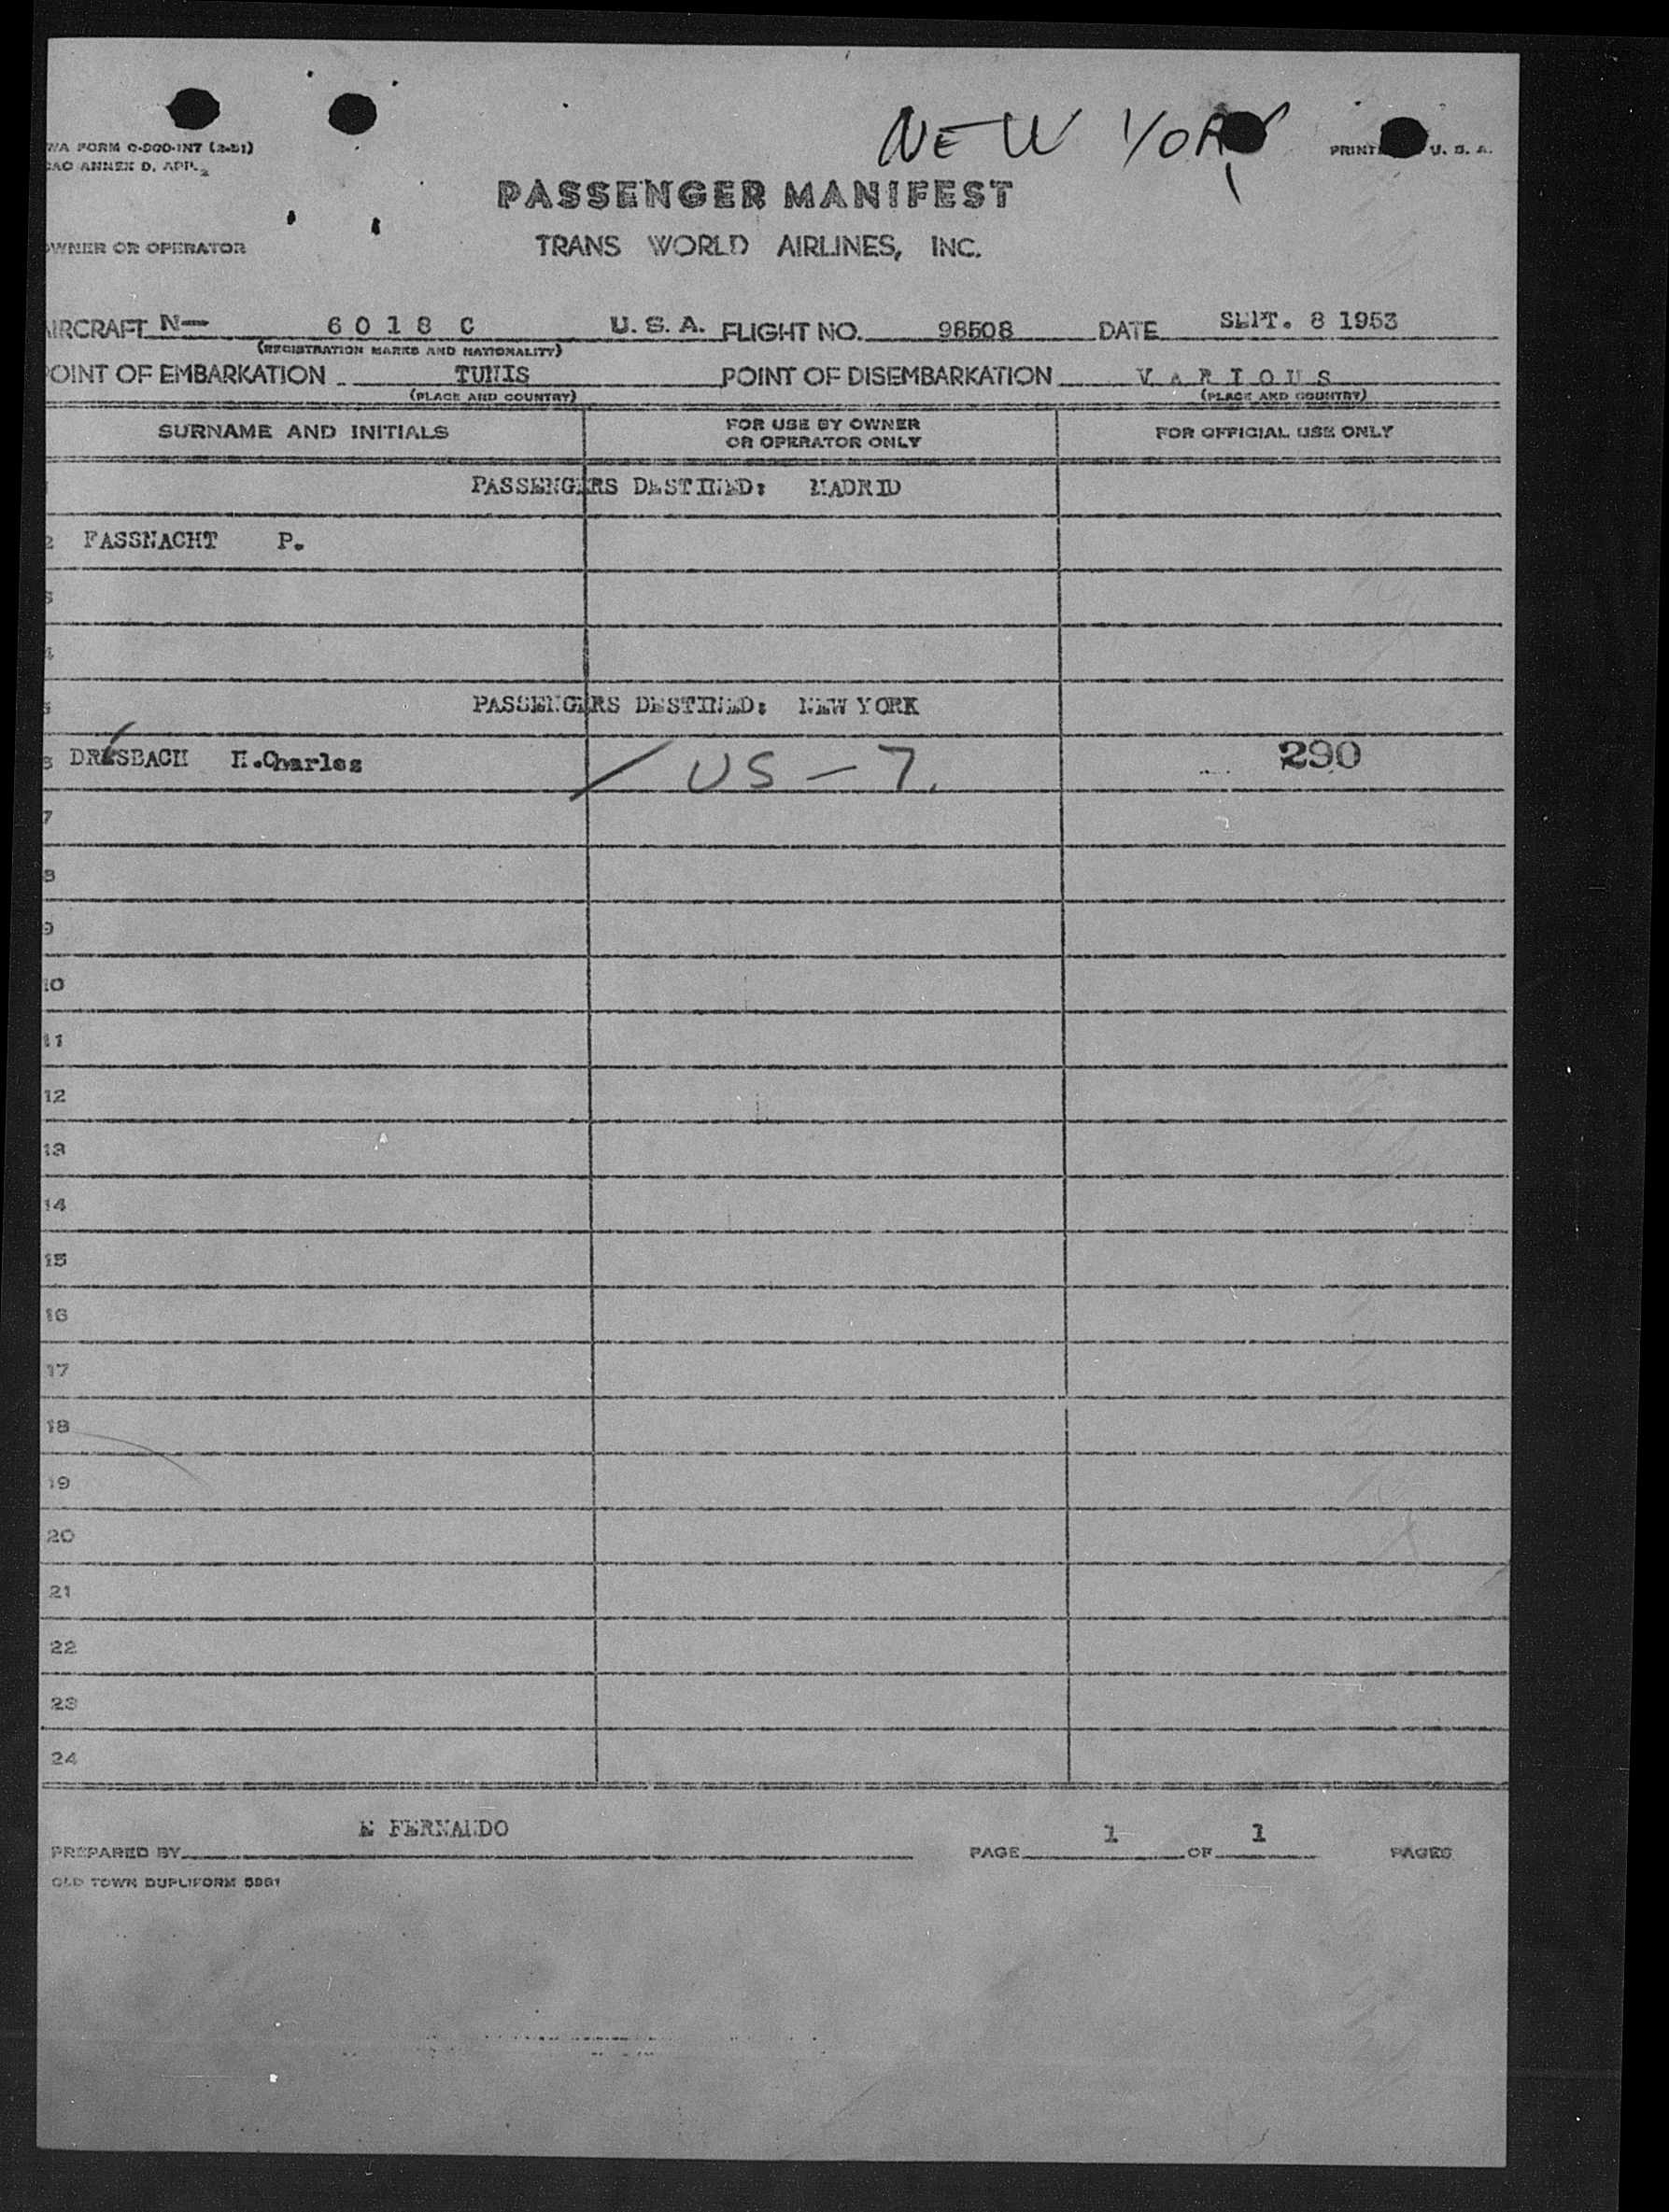 NEW YORK
WA FORM O-900-INT (2-51)
CAO ANNEX D, APP. 2
PRINT U. S. A.
PASSENGER MANIFEST
WNER OR OPERATOR
TRANS WORLD AIRLINES, INC.
AIRCRAFT N- 6018 C U. S. A. FLIGHT NO. 98508 DATE SEPT. 8 1953
(REGISTRATION MARKS AND NATIONALITY)
POINT OF EMBARKATION TUNIS POINT OF DISEMBARKATION VARIOUS
(PLACE AND COUNTRY) (PLACE AND COUNTRY)
SURNAME AND INITIALS FOR USE BY OWNER OR OPERATOR ONLY FOR OFFICIAL USE ONLY
PASSENGERS DESTINED: MADRID
2 FASSNACHT P.
3
4
5 PASSENGERS DESTINED: NEW YORK
6 DRESBACH H.Charles / US - 7. 290
7
8
9
10
11
12
13
14
15
16
17
18
19
20
21
22
23
24
E FERNANDO
PREPARED BY PAGE 1 OF 1 PAGES
OLD TOWN DUPLIFORM 5961